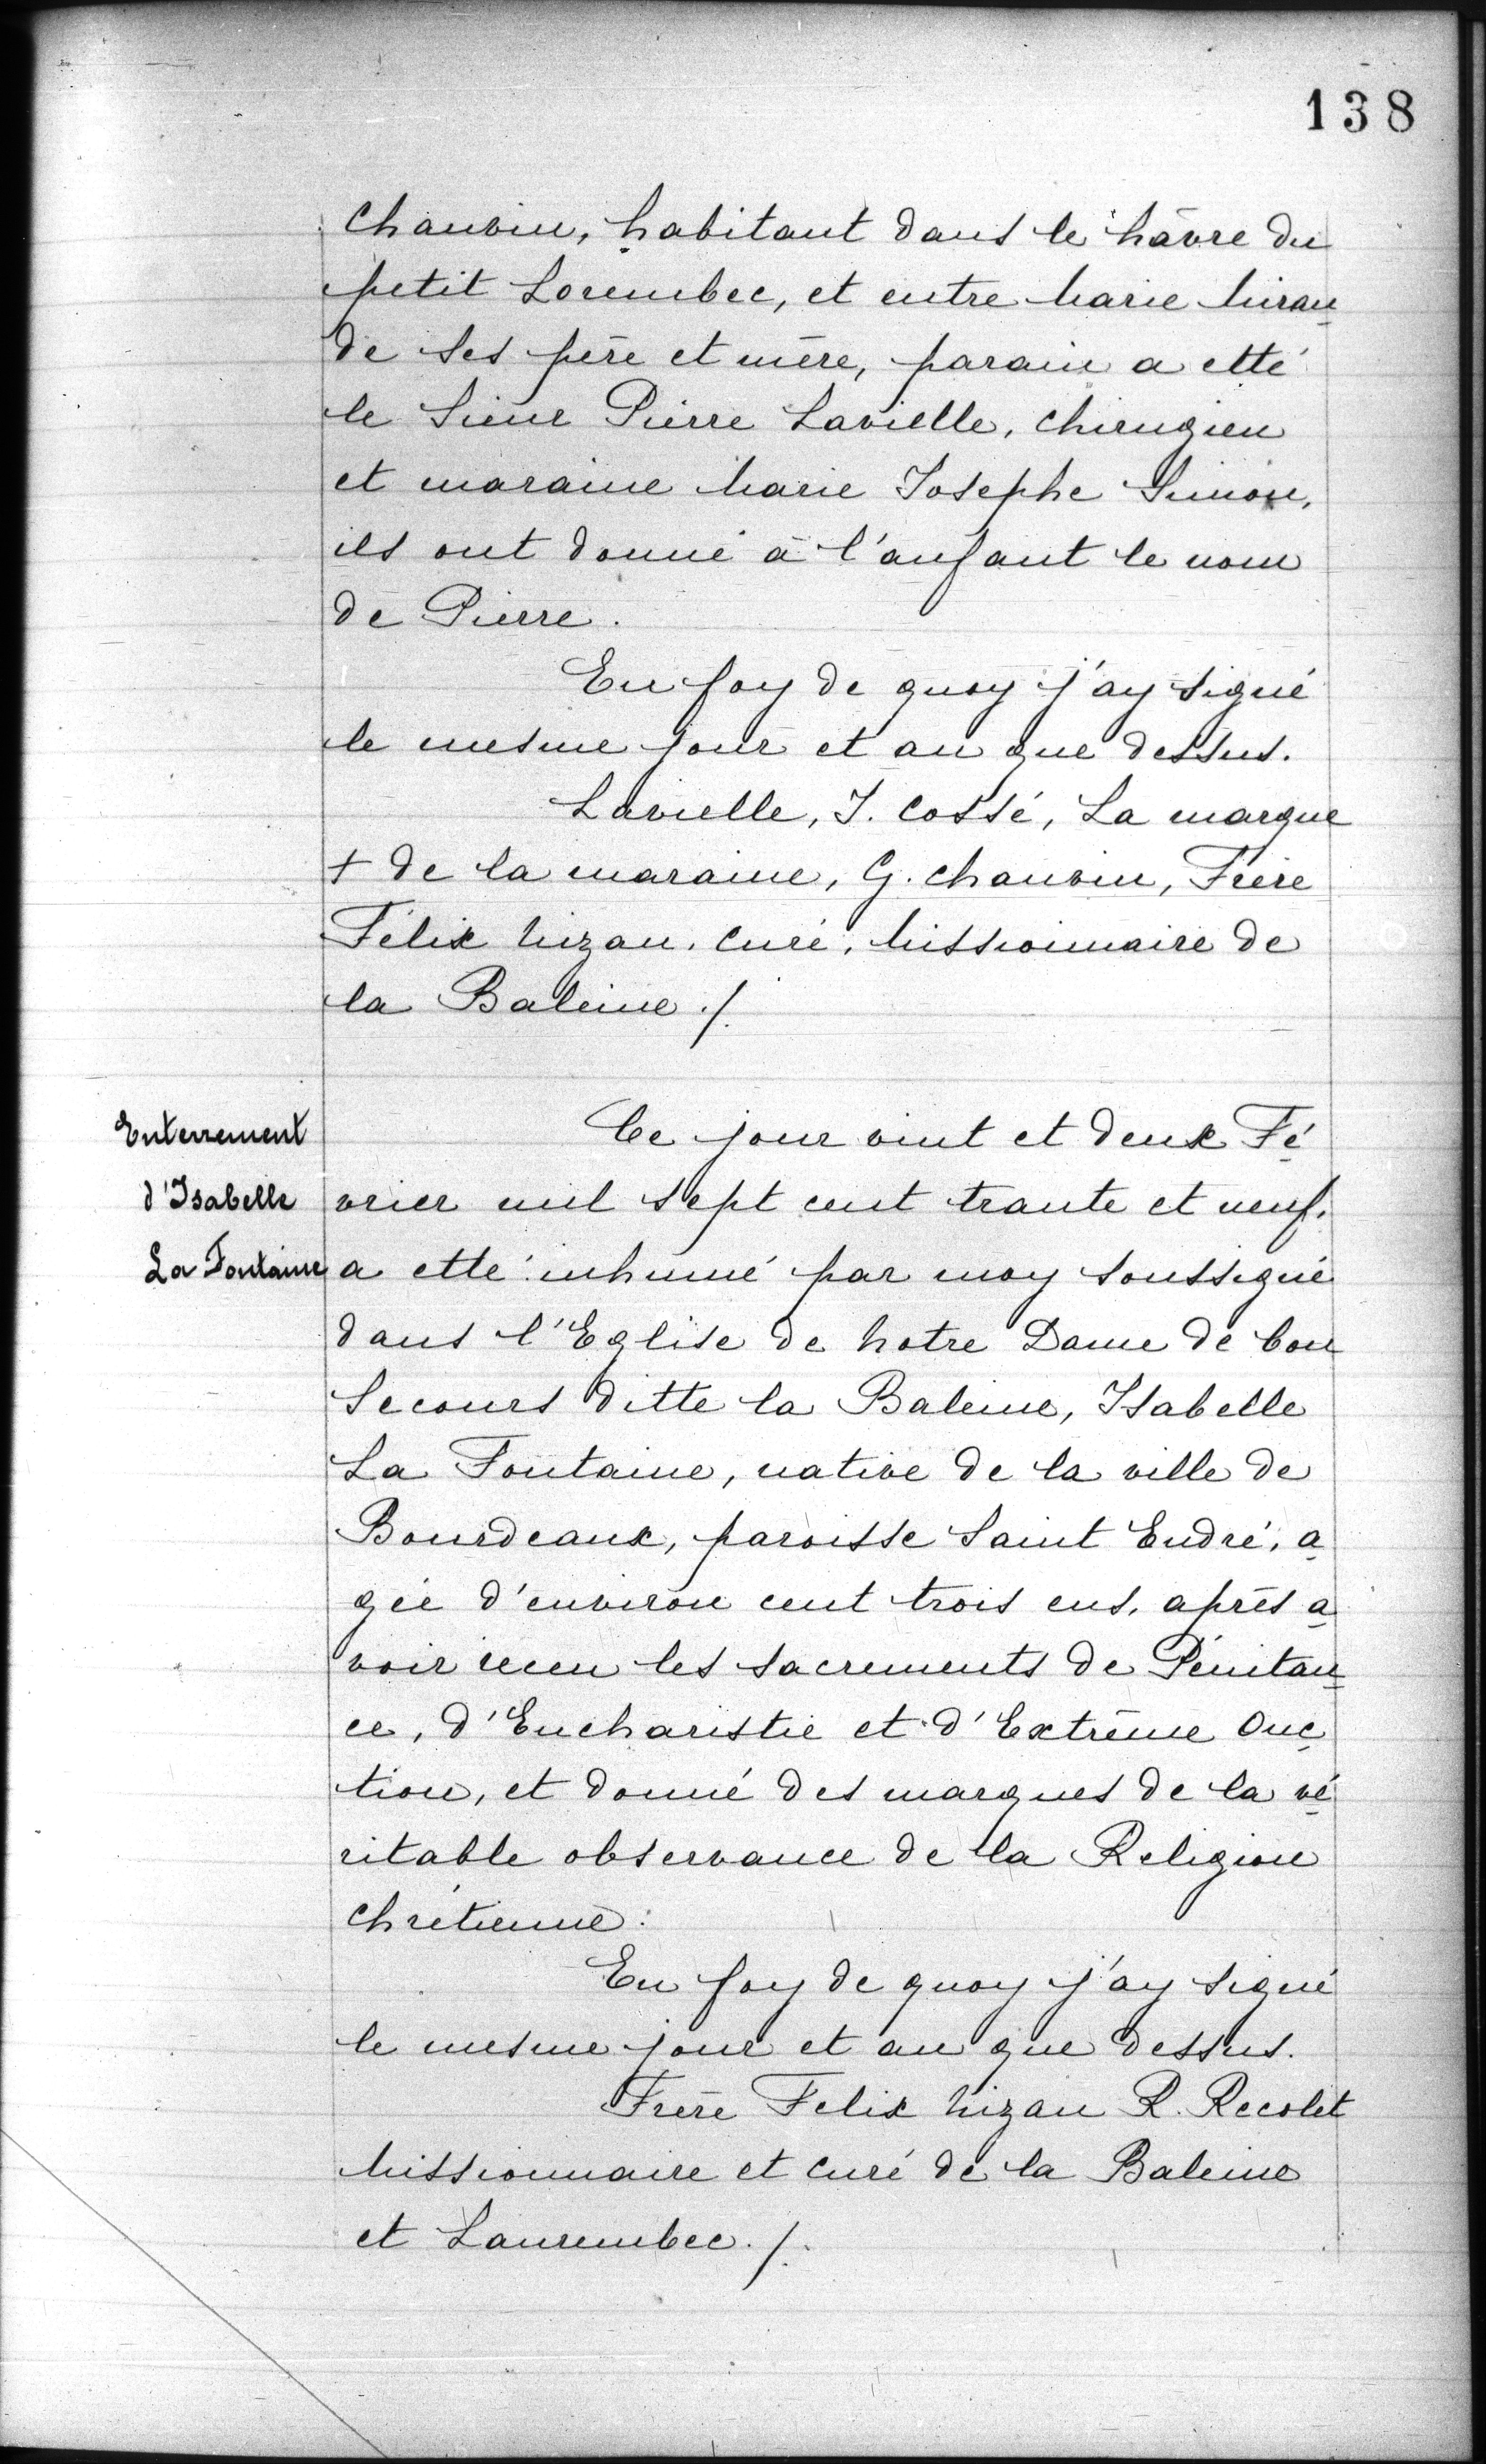 138
Chauvin, habitant dans le hâvre du
petit Lorembec, et entre Marie Miran
de ses père et mère, parain a etté
le Sieur Pierre Lavielle, chirugien
et maraine Marie Josephe Simon,
ils ont donné à l'anfant le nom
de Pierre.
En foy de quoy j'ay signé
le mesme jour et an que dessus.
Lavielle, J. Cossé, La marque
+ de la maraine, G. Chauvin, Frère
Félix Nizan, Curé, Missionnaire de
la Baleine ./.
Enterrement
d'Isabelle
La Fontaine
Ce jour vint et deux Fé
vrier mil sept cent trante et neuf,
a etté inhumé par moy soussigné
dans l'Eglise de Notre Dame de bon
Secours ditte la Baleine, Isabelle
La Fontaine, native de la ville de
Bourdeaux, paroisse Saint Endré, a
gée d'environ cent trois ens, après a
voir receu les sacrements de Pénitan
ce, d'Eucharistie et d'Extrême Onc
tion, et donné des marques de la vé
ritable observance de la Religion
Chrétienne:
En foy de quoy j'ay signé
le mesme jour et an que dessus.
Frère Felix Nizan R. Recolet
Missionnaire et Curé de la Baleine
et Laurembec ./.